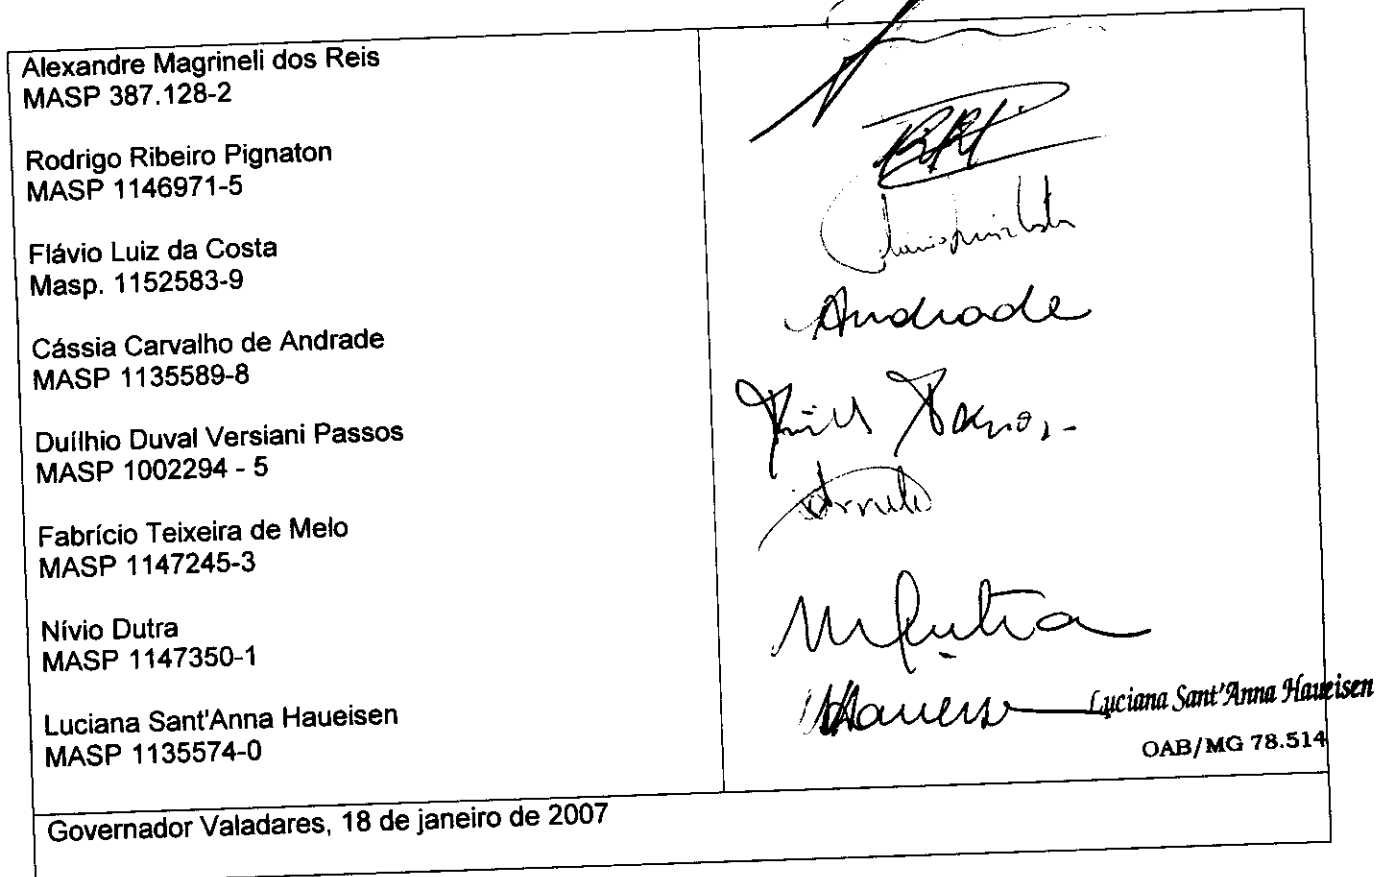 Alexandre Magrineli dos Reis
MASP 387.128-2
Rodrigo Ribeiro Pignaton
MASP 1146971-5
Flávio Luiz da Costa
Masp. 1152583-9
Cássia Carvalho de Andrade
MASP 1135589-8
Andrade
Duílhio Duval Versiani Passos
MASP 1002294 - 5
Fabrício Teixeira de Melo
MASP 1147245-3
Nívio Dutra
MASP 1147350-1
Luciana Sant'Anna Haueisen
MASP 1135574-0
Luciana Sant'Anna Haueisen
OAB/MG 78.514
Governador Valadares, 18 de janeiro de 2007